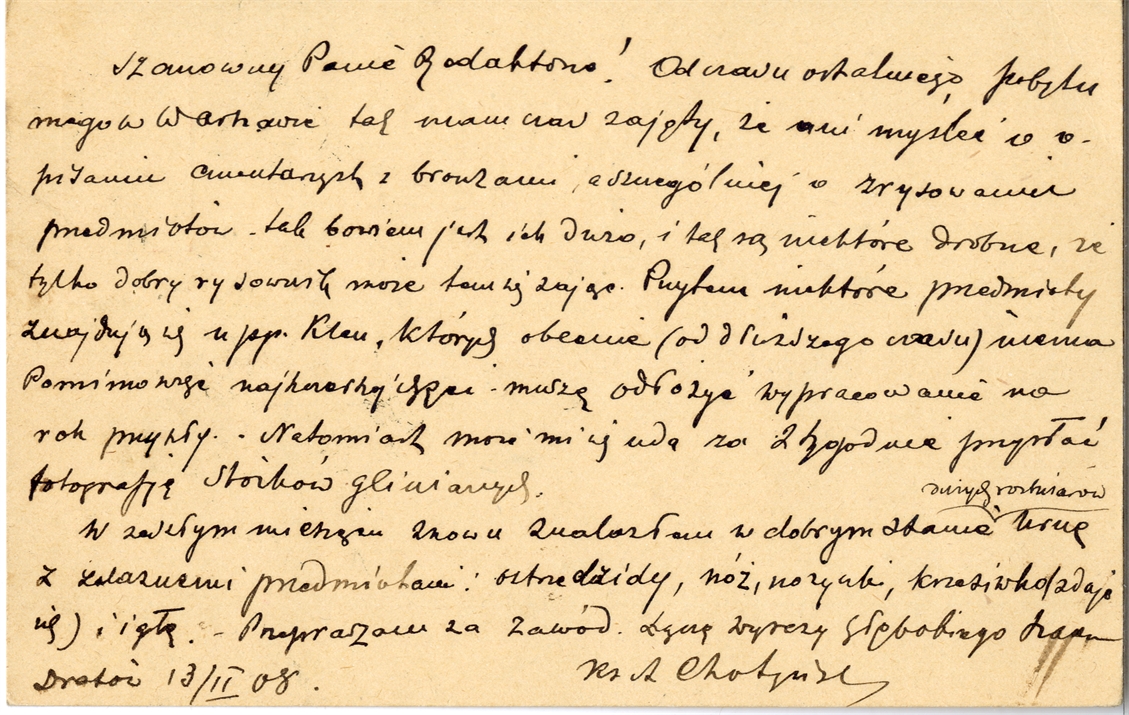 Szanowny Panie Redaktorze! Od czasu ostatniego pobytu
mego w Warszawie tak mam czas zajęty, że ani myśleć o o-
pisaniu cmentarzysk z bronzami, a szczególniej o zrysowaniu
przedmiotów - tak bowiem jest ich dużo, i tak są niektóre drobne, że
tylko dobry rysownik może tem się zająć. Przytem niektóre przedmioty
znajdują się u pp. Klen, których obecnie (od dłuższego czasu) niema
Pomimo więc najszczerszych chęci - muszę odłożyć wypracowanie na
rok przyszły. - Natomiast może mi się uda za 2 tygodnie przysłać
fotografję słoików glinianych.
dużych rozmiarów
W zeszłym miesiącu znowu znalazłem w dobrym stanie Urnę
z żelaznemi przedmiotami: ostrze dzidy, nóż, nożyczki, krzesiwko (zdaje
się) i igłę. - Przepraszam za zawód. Łączę wyrazy głębokiego szacun
Drohów 13/II 08.
Ks A Chotyński